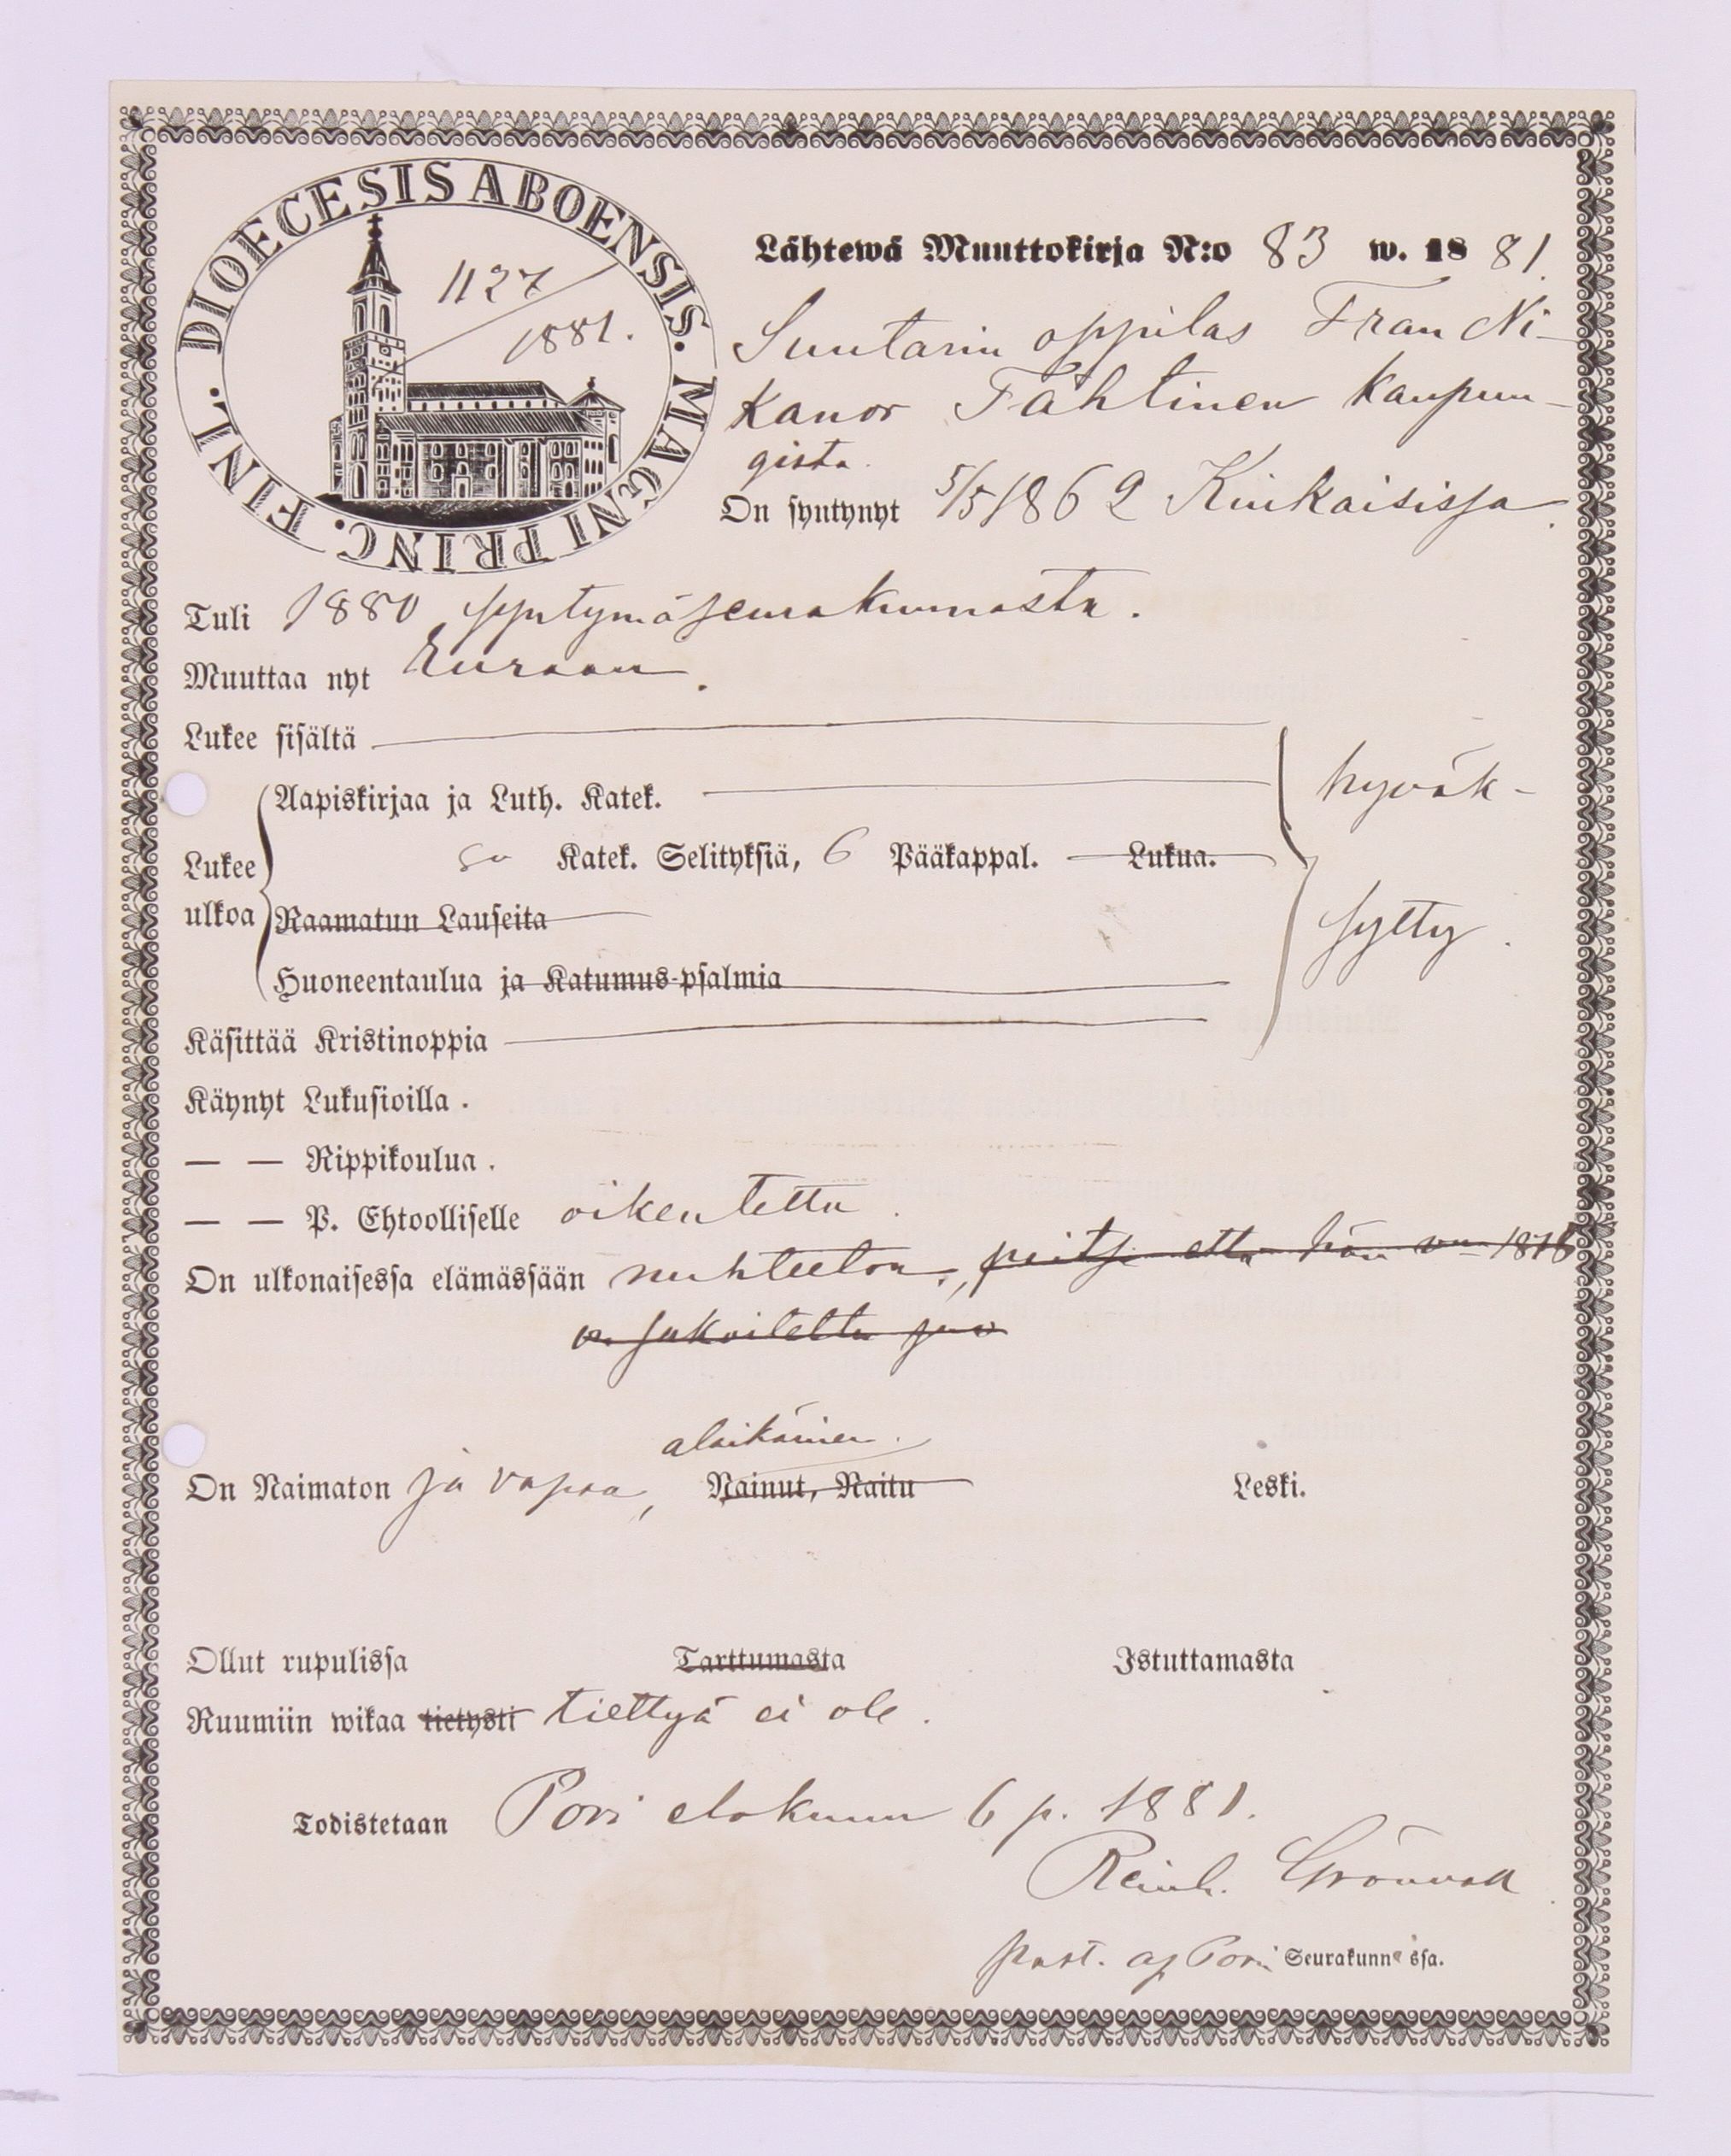 DIOECESIS ABOENSIS. MAGNI PRINC. FINL.
1127
1881.
Lähtewä Muuttokirja N:o 83 w. 1881.
Suutarin oppilas Fran Ni-
kanor Tähtinen kaupun-
gista.
On syntynyt 5/5 1862 Kiukaisissa.
Tuli 1880 syntymäseurakunnasta.
Muuttaa nyt Euraan.
Lukee sisältä
hyväk-
Aapiskirjaa ja Luth. Katek.
Lukee ulkoa
Katek. Selityksiä, 6 Pääkappal. Lukua.
Raamatun Lauseita
sytty.
Huoneentaulua ja Katumus-psalmia
Käsittää Kristinoppia
Käynyt Lukusioilla.
— — Rippikoulua.
— — P. Ehtoolliselle oikeutettu.
On ulkonaisessa elämässään nuhteeton, paitsi että hän 1878
on sakoitettu
alaikäinen.
On Naimaton ja vapaa, Nainut, Naitu Leski.
Ollut rupulissa Tarttumasta Istuttamasta
Ruumiin wikaa tietysti tiettyä ei ole.
Todistetaan Pori elokuun 6 p. 1881.
Reinh. Grönvall
past. Pori Seurakunnassa.